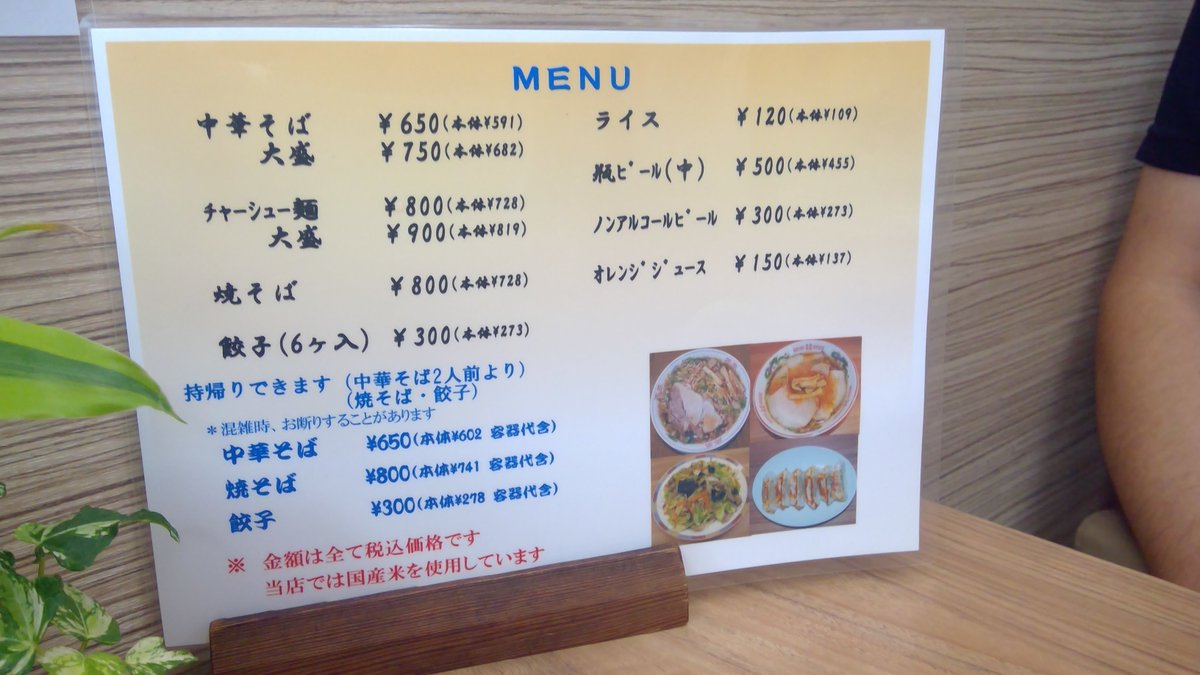 MENU
中華そば ¥650(本体¥591)
大盛 ¥750(本体¥682)
チャーシュー麺 ¥800(本体¥728)
大盛 ¥900(本体¥819)
焼そば ¥800(本体¥728)
餃子(6ヶ入) ¥300(本体¥273)
ライス ¥120(本体¥109)
瓶ビール(中) ¥500(本体¥455)
ノンアルコールビール ¥300(本体¥273)
オレンジジュース ¥150(本体¥137)
持帰りできます (中華そば2人前より)
(焼そば・餃子)
*混雑時、お断りすることがあります
中華そば ¥650(本体¥602 容器代含)
焼そば ¥800(本体¥741 容器代含)
餃子 ¥300(本体¥278 容器代含)
※ 金額は全て税込価格です
当店では国産米を使用しています